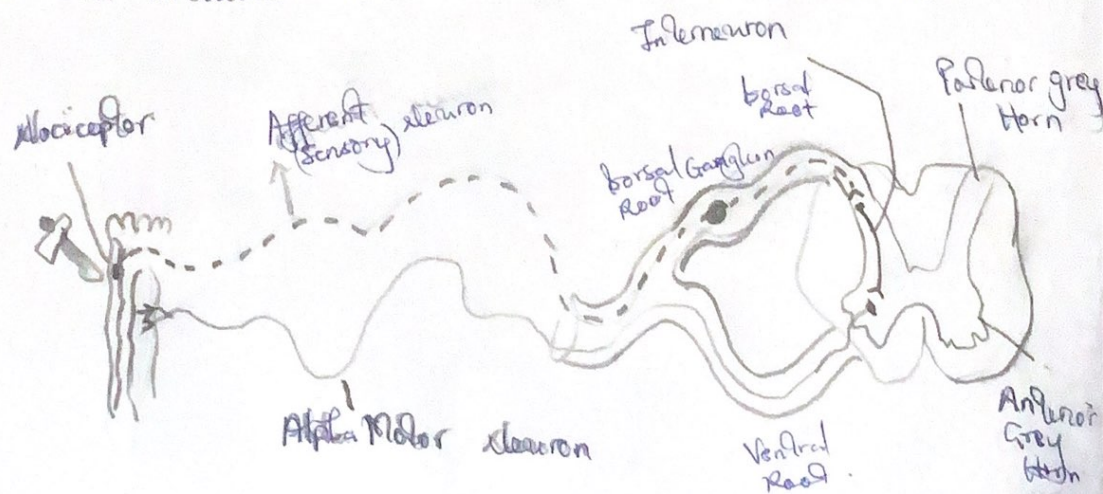 Interneuron
Dorsal
Root
Posterior grey
Horn
Nociceptor
Afferent
(sensory) Neuron
Dorsal Ganglion
Root
Alpha Motor Neuron
Ventral
Root.
Anterior
Grey
Horn